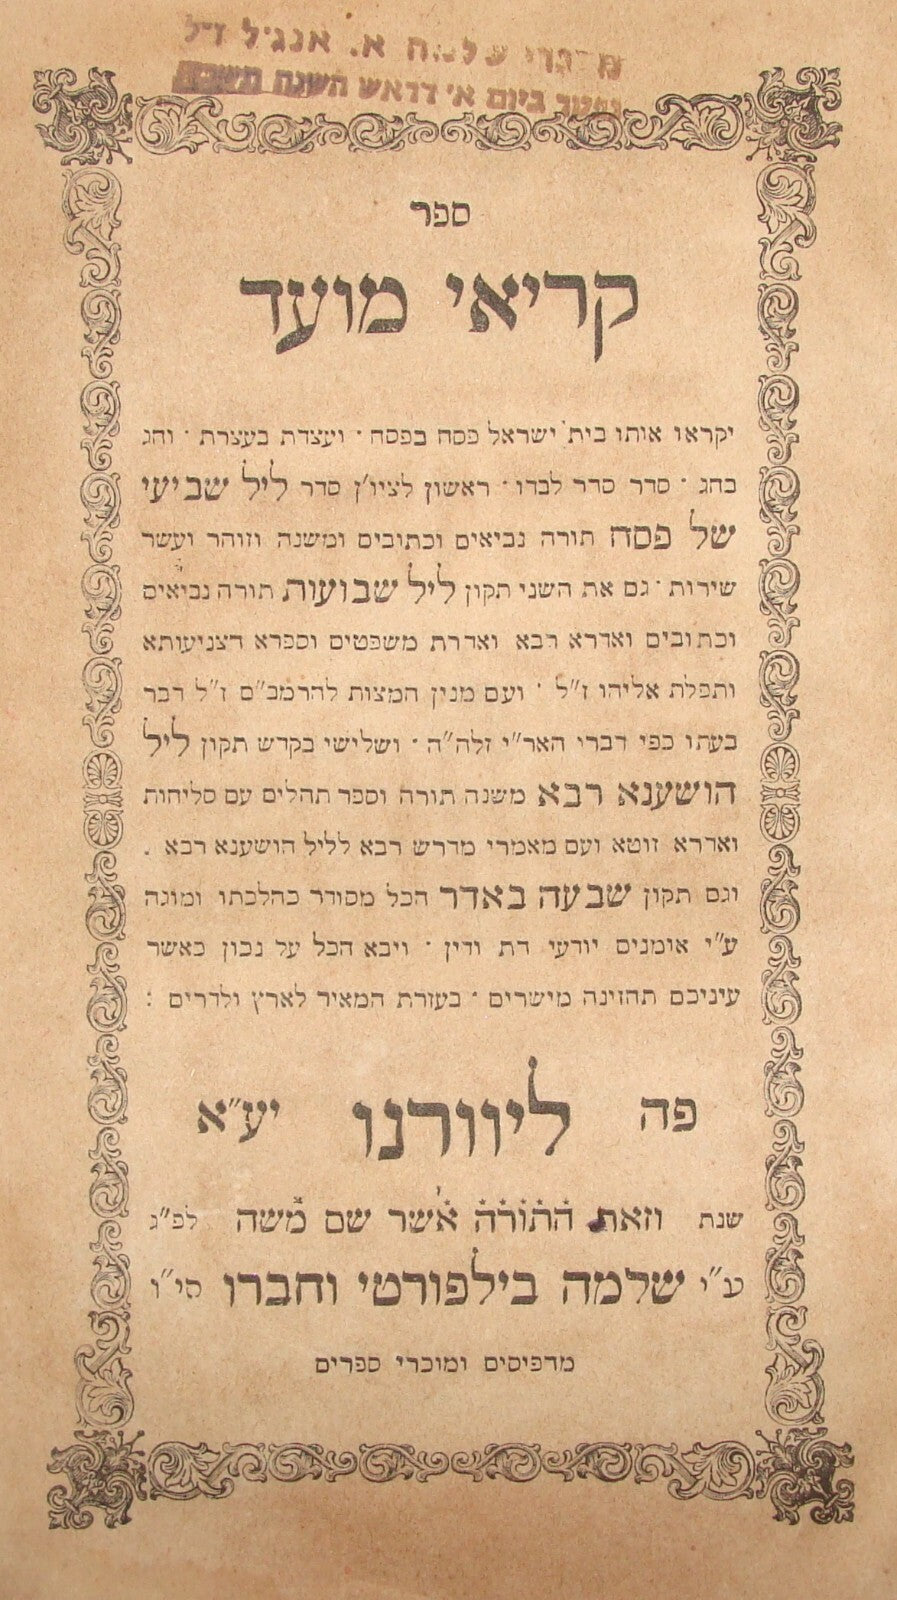 א. אנג'ל ז"ל
ביום א' דראש השנה
ספר
קריאי מועד
יקראו אותו בית ישראל פסח בפסח · ועצרת בעצרת · וחג
בחג · סדר סדר לבדו · ראשון לציו'ן סדר ליל שביעי
של פסח תורה נביאים וכתובים ומשנה וזוהר ועשר
שירות · גם את השני תקון ליל שבועות תורה נביאים
וכתובים ואדרא רבא ואדרת משפטים וספרא דצניעותא
ותפלת אליהו ז"ל · ועם מנין המצות להרמב"ם ז"ל דבר
בעתו כפי דברי האר"י זלה"ה · ושלישי בקדש תקון ליל
הושענא רבא משנה תורה וספר תהלים עם סליחות
ואדרא זוטא ועם מאמרי מדרש רבא לליל הושענא רבא .
וגם תקון שבעה באדר הכל מסודר כהלכתו ומוגה
ע"י אומנים יודעי דת ודין · ויבא הכל על נכון כאשר
עיניכם תחזינה מישרים · בעזרת המאיר לארץ ולדרים :
פה ליוורנו יע"א
שנת וזאת התורה אשר שם משה לפ"ג
ע"י שלמה בילפורטי וחברו הי"ו
מדפיסים ומוכרי ספרים